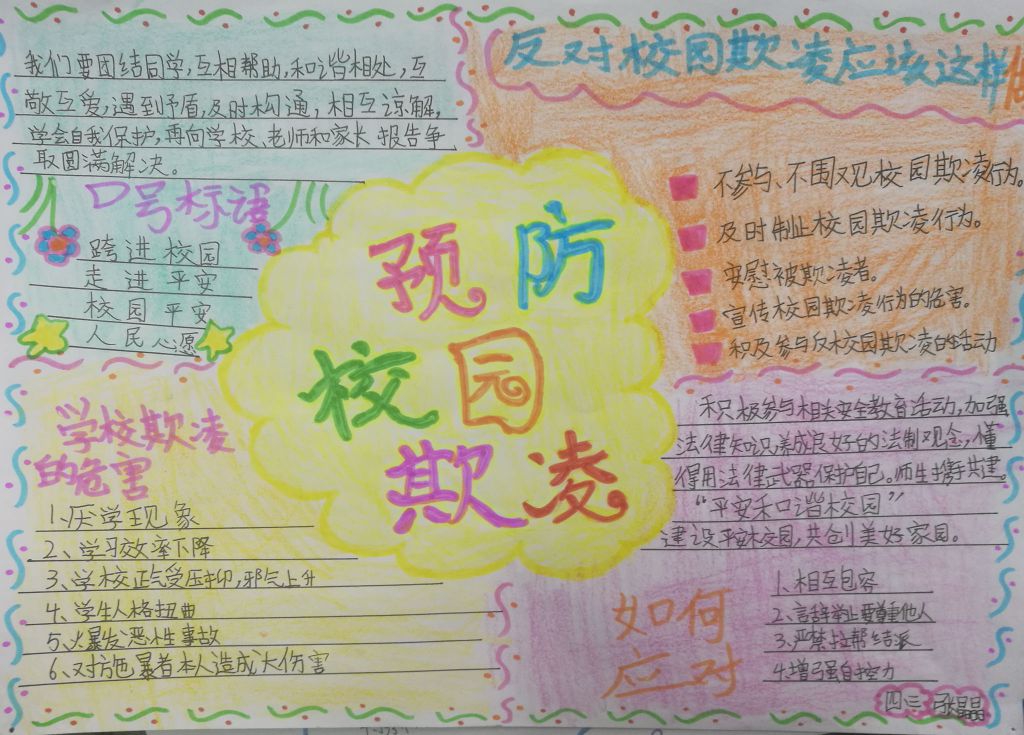 我们要团结同学,互相帮助,和谐相处,互
敬互爱,遇到矛盾,及时沟通,相互谅解,
学会自我保护,再向学校、老师和家长报告争
取圆满解决。
口号标语
跨进校园
走进平安
校园平安
人民心愿
学校欺凌
的危害
1、厌学现象
2、学习效率下降
3、学校正气受压抑,邪气上升
4、学生人格扭曲
5、火暴发恶性事故
6、对施暴者本人造成大伤害
预防
校园
欺凌
反对校园欺凌应该这样做
不参与、不围观校园欺凌行为。
及时制止校园欺凌行为。
安慰被欺凌者。
宣传校园欺凌行为的危害。
和及参与反校园欺凌的活动
积极参与相关安全教育活动,加强
法律知识养成良好的法制观念,懂
得用法律武器保护自己。师生携手共建。
“平安和谐校园”
建设平安校园,共创美好家园。
如何
应对
1、相互包容
2、言辞举止要尊重他人
3、严禁拉帮结派
4、增强自控力
四、三